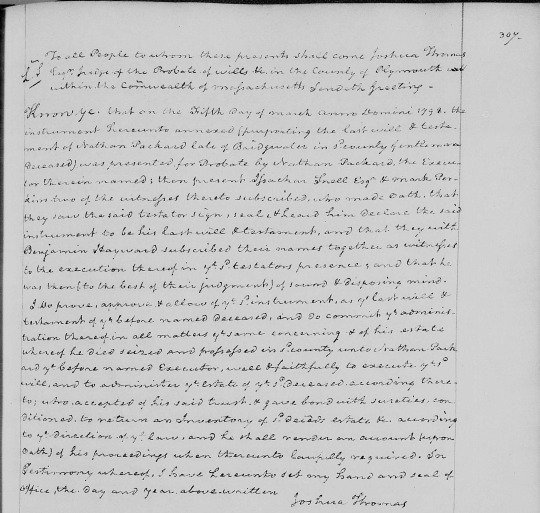 307.
To all People to whom these presents shall come Joshua Thomas
L S Esqr. Judge of the Probate of wills &c. in the County of Plymouth
within the Comwealth of massachusetts Sendeth Greeting.
Know ye. that on the Fifth Day of march anno Domini 1798. the
instrument hereunto annexed (purporting the last will & testa-
ment of Nathan Packard late of Bridgwater in sd. county Gentleman
deceased) was presented for Probate by Nathan Packard, the Execu-
tor therein named; then present Issachar Snell Esqr. & mark Per-
kins two of the witnesses thereto subscribed, who made Oath, that
they saw the said testator sign, seal, & heard him declare the said
instrument to be his last will & testament, and that they with
Benjamin Hayward subscribed their names together as witnesses
to the execution thereof in ye. sd. testators presence; and that he
was then (to the best of their judgment) of sound & disposing mind.
I Do prove, approve & allow of ye. sd. instrument, as ye. last will &
testament of ye. before named deceased, and do commit ye. adminis-
tration thereof in all matters ye. same concerning & of his estate
whereof he died seized and possessed in sd. county unto Nathan Pack
ard ye. before named Executor, well & faithfully to execute ye. sd.
will, and to administer ye. estate of ye. sd. deceased according there-
to; who accepted of his said trust, & gave bond with sureties, con-
ditioned, to return an Inventory of sd. deceds. estate &c. according
to ye. direction of ye. law; and he shall render an account (upon
Oath) of his proceedings when thereunto lawfully required. In
Testimony whereof, I have hereunto set my hand and seal of
Office, the day and year above written
Joshua Thomas